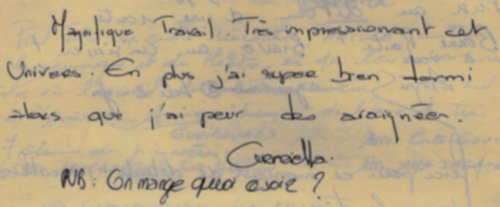 Magnifique Travail. Très impressionnant cet
Univers. En plus j'ai super bien dormi
alors que j'ai peur des araignées.
NB: On mange quoi ce soir ?